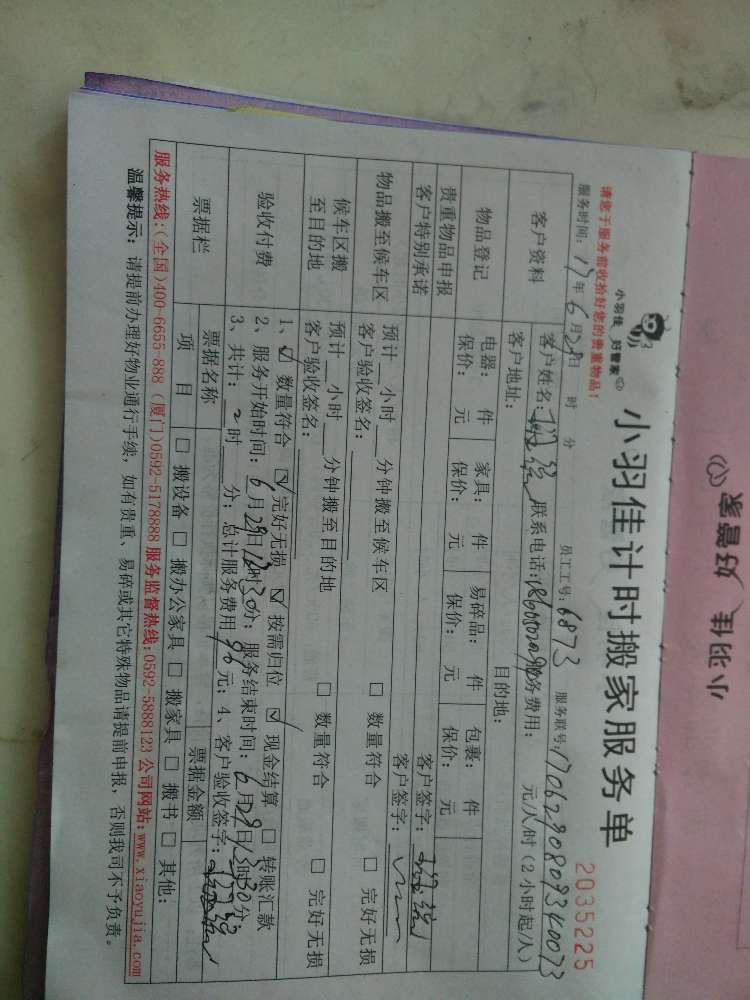 小羽佳 好管家
小羽佳 好管家
小羽佳计时搬家服务单
2035225
请您于服务前收拾好您的贵重物品!
服务时间: 17年 6月 29日 时 分 员工工号: 6873 服务联号: 1706290809340073
客户资料
客户姓名: 联系电话: 服务费用: 元/人/时(2小时起/人)
客户地址: 目的地:
物品登记
电器: 件 家具: 件 易碎品: 件 包裹: 件
保价: 元 保价: 元 保价: 元 保价: 元
贵重物品申报 客户签字:
客户特别承诺 客户签字:
物品搬至候车区
预计 小时 分钟搬至候车区 □ 数量符合 □ 完好无损
客户验收签名:
候车区搬至目的地
预计 小时 分钟搬至目的地 □ 数量符合 □ 完好无损
客户验收签名:
验收付费
1、☑ 数量符合 ☑ 完好无损 ☑ 按需归位 ☑ 现金结算 □ 转账汇款
2、服务开始时间: 6月29日 时30分; 服务结束时间: 6月29日 时30分;
3、共计: 2时 分; 总计服务费用 96元; 4、客户验收签字:
票据栏
票据名称 票据金额
项 目 □ 搬设备 □ 搬办公家具 □ 搬家具 □ 搬书 □ 其他:
服务热线:(全国)400-6655-888 (厦门)0592-5178888 服务监督热线:0592-5888123 公司网站:www.xiaoyujia.com
温馨提示: 请提前办理好物业通行手续, 如有贵重、易碎或其它特殊物品请提前申报, 否则我司不予负责。